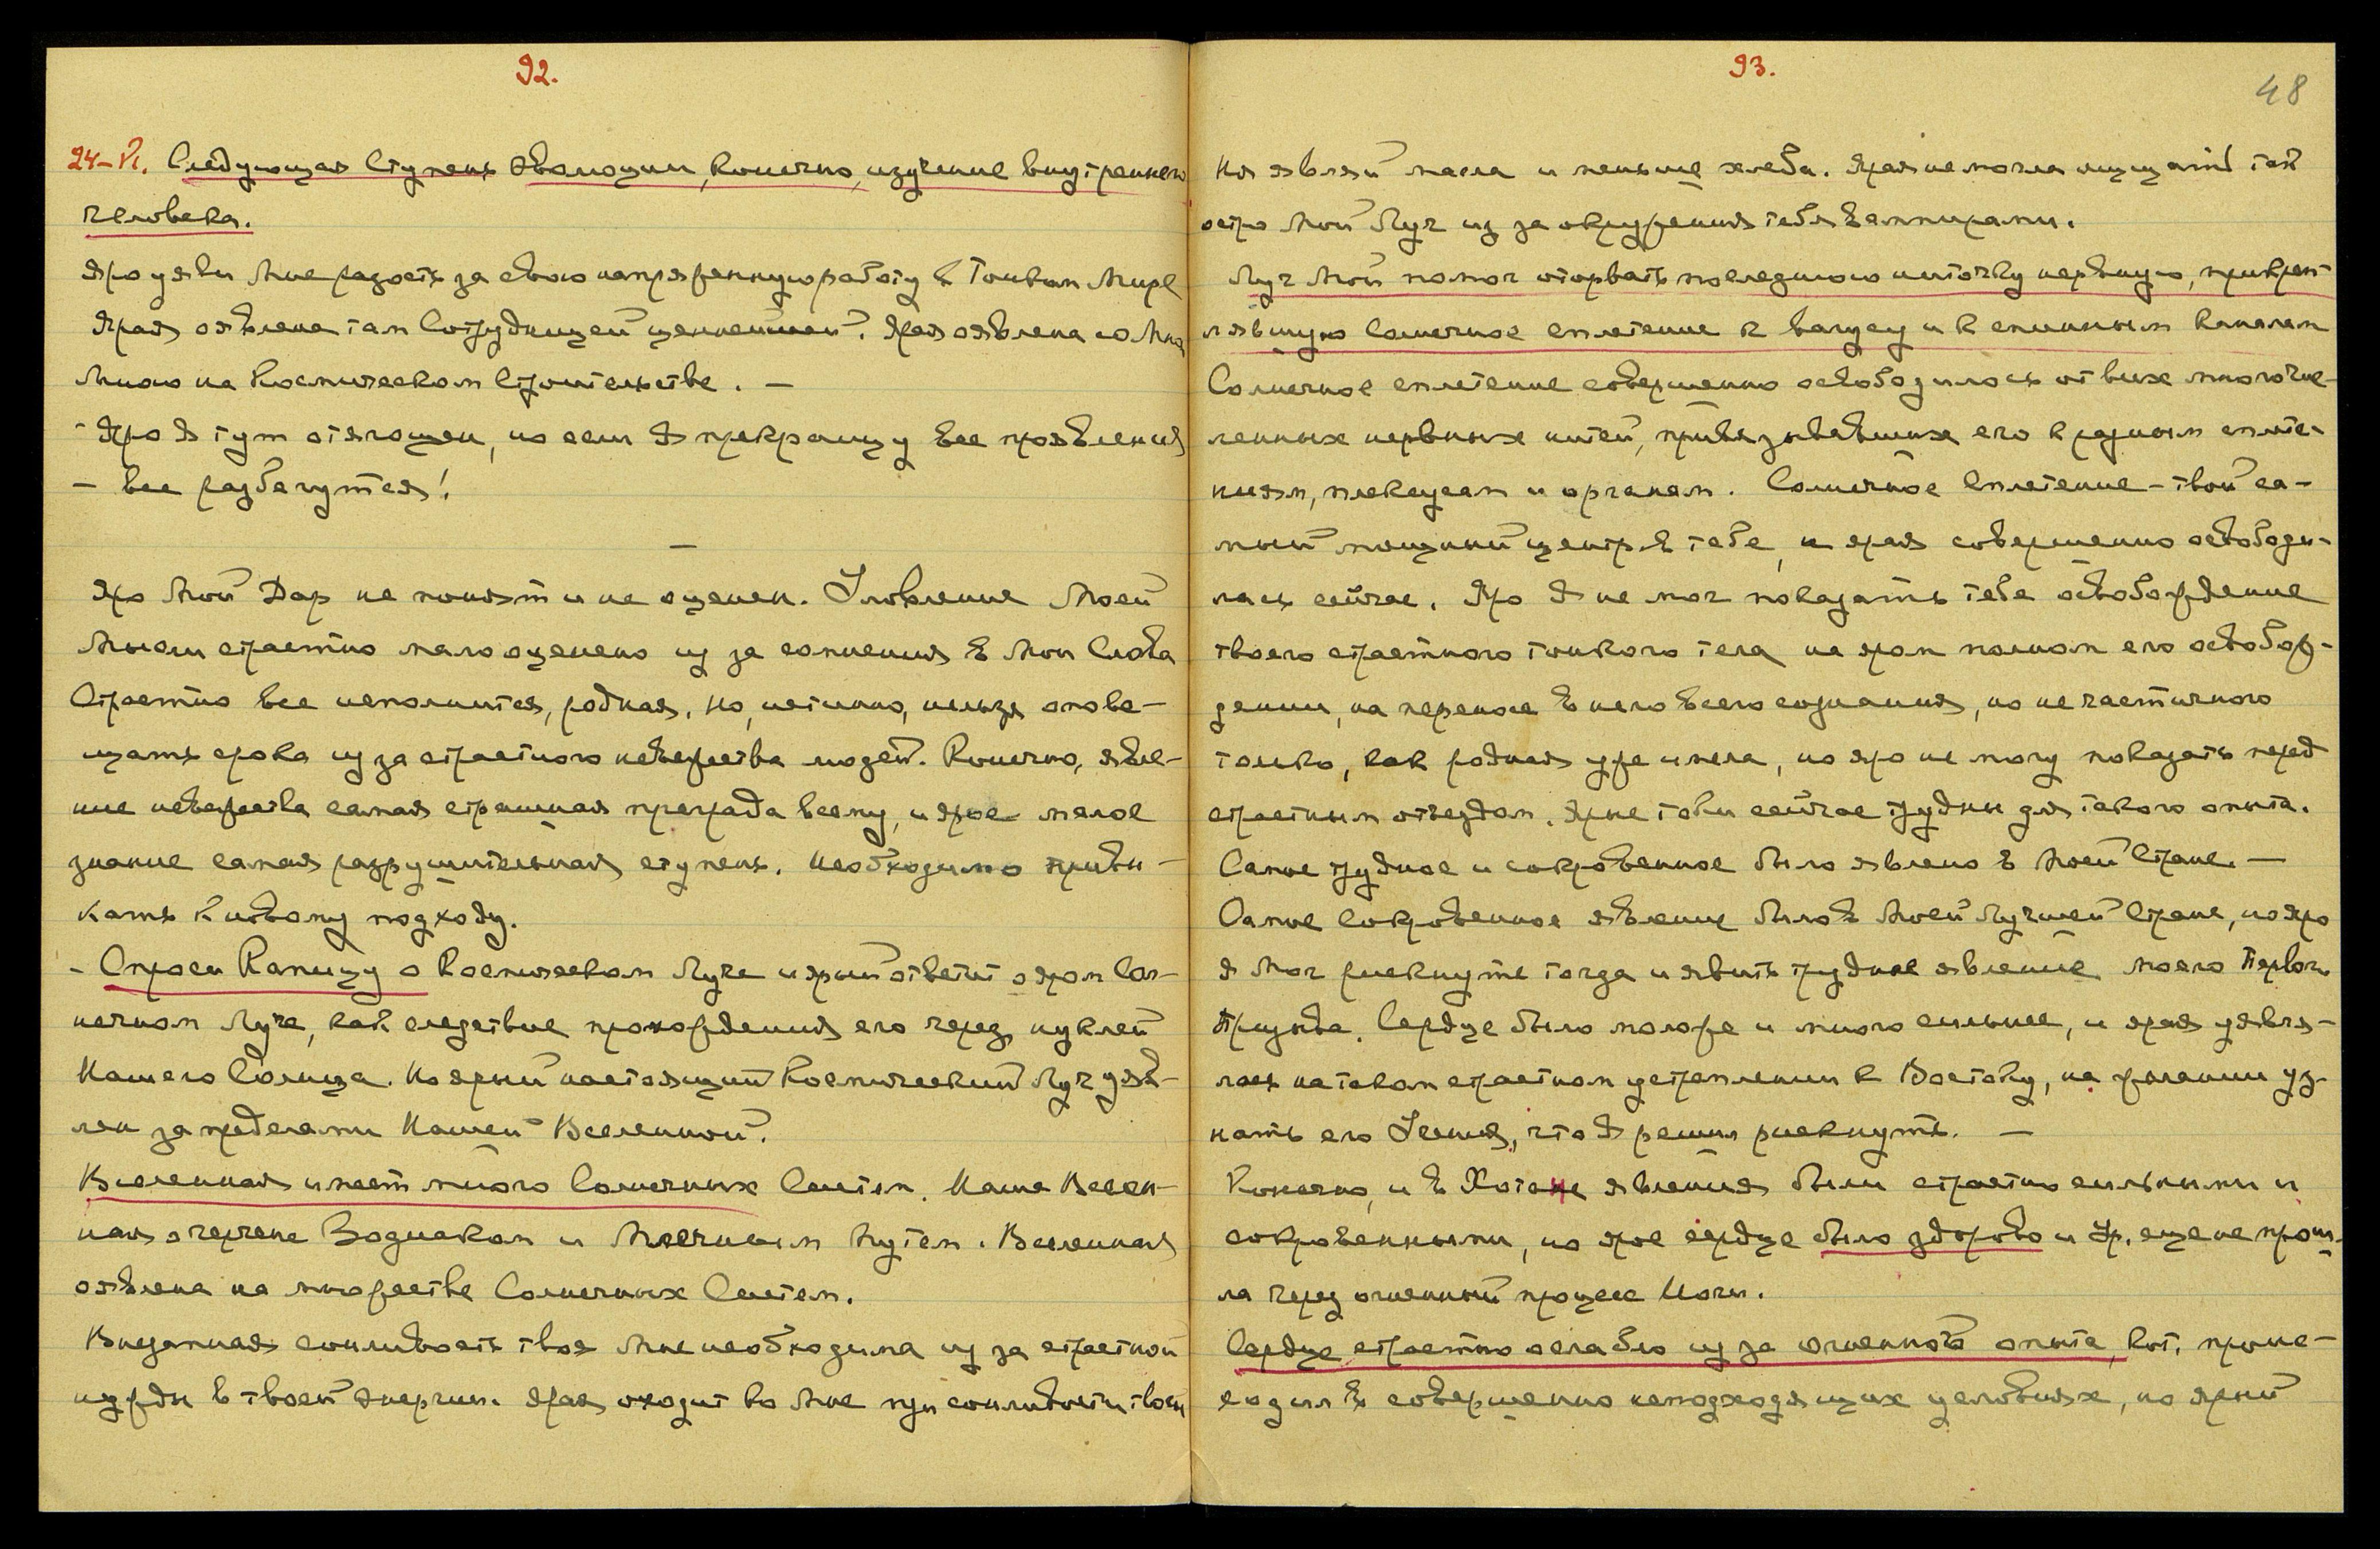 92.
24-VI. Следующая Ступень Эволюции, Конечно, изучение внутреннего
человека.
Яро уяви Мне радость за свою напряженную работу в Тонком Мире
Ярая оявлена там Сотрудницей ценнейшей. Ярая оявлена со Мно
Мною на Космическом Строительстве. —
- Яро Я тут отягощен, но если Я прекращу все проявления
— все разбегутся!
—
Яро Мой Дар не понят и не оценен. Уловление Моей
Мысли страстно мало оценено из за сомнения в Мои Слова
Страстно все исполнится, родная, но, истинно, нельзя опове-
щать срока из за страстного невежества людей. Конечно, явле-
ние невежества самая страшная преграда всему, и ярое малое
знание самая разрушительная ступень. Необходимо привы-
кать к новому подходу.
- Спроси Капицу о Космическом Луче и ярый ответит о яром Сол-
нечном Луче, как следствие прохождения его через нуклей
Нашего Солнца. Но ярый настоящий Космический Луч уяв-
лен за пределами Нашей Вселенной.
Вселенная имеет много Солнечных Систем. Наша Вселен-
ная очерчена Зодиаком и Млечным Путем. Вселенная
оявлена на множестве Солнечных Систем.
Внезапная сонливость твоя Мне необходима из за страстной
нужды в твоей энергии. Ярая уходит ко Мне при сонливости твоей
93.
48
Не являй масла и меньше хлеба. Ярая не могла ощущать так
остро Мой Луч из за окружения тебя вампирами.
Луч Мой помог оторвать последнюю ниточку нервную, прикреп-
лявшую Солнечное сплетение к вагусу и к спинным каналам
Солнечное сплетение совершенно освободилось от всех многочис-
ленных нервных нитей, привязывавших его к разным сплете-
ниям, плексусам и органам. Солнечное Сплетение — твой са-
мый мощный центр в тебе, и ярая совершенно освободи-
лась сейчас. Яро Я не мог показать тебе освобождение
твоего страстного тонкого тела на яром полном его освобож-
дении, на переносе в него всего сознания, но не частичного
только, как родная уже имела, но яро не могу показать перед
страстным отъездом. Ярые токи сейчас трудны для такого опыта.
Самое трудное и сокровенное было явлено в Моей Стране. —
Самое Сокровенное явление было в Моей Лучшей Стране, но яро
Я Мог рискнуть тогда и явить трудное явление Моего Первого
Призыва. Сердце было моложе и много сильнее, и ярая уявля-
лась на таком страстном устремлении к Востоку, на желании уз-
нать его Учения, что Я решил рискнуть. —
Конечно, и в Хотане явления были страстно сильными и
сокровенными, но ярое сердце было здорово и Ур. еще не прош-
ла через огненный процесс Йоги.
Сердце страстно ослабло из за огненного опыта, кот. проис-
ходил в совершенно неподходящих условиях, но ярый